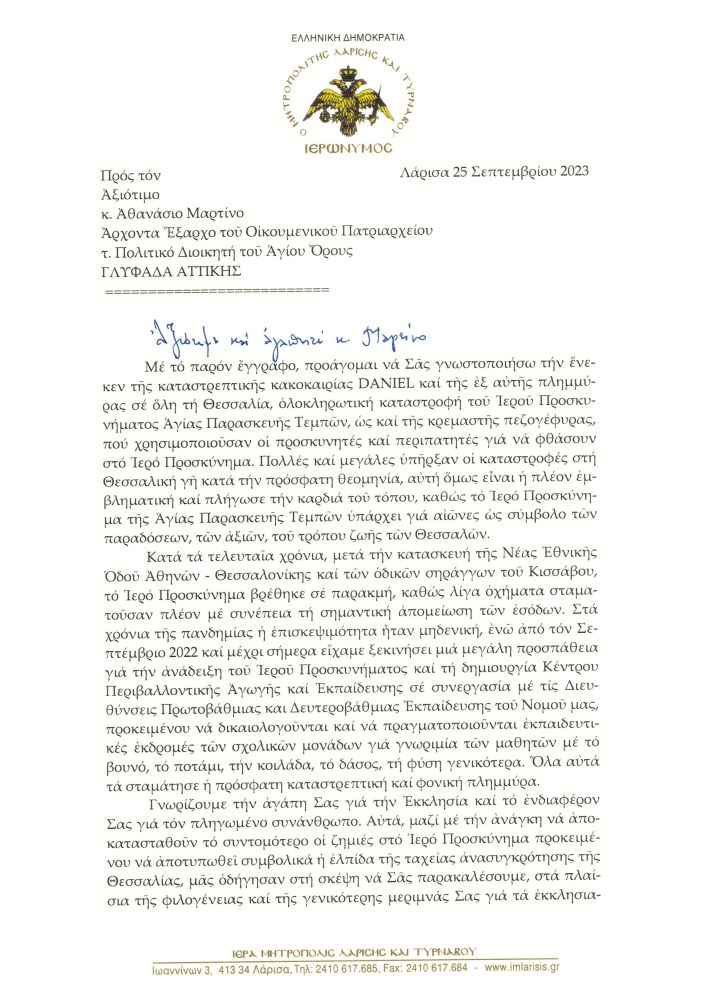 ΕΛΛΗΝΙΚΗ ΔΗΜΟΚΡΑΤΙΑ
Ο ΜΗΤΡΟΠΟΛΙΤΗΣ ΛΑΡΙΣΗΣ ΚΑΙ ΤΥΡΝΑΒΟΥ
ΙΕΡΩΝΥΜΟΣ
Λάρισα 25 Σεπτεμβρίου 2023
Πρός τόν
Ἀξιότιμο
κ. Ἀθανάσιο Μαρτίνο
Ἄρχοντα Ἔξαρχο τοῦ Οἰκουμενικοῦ Πατριαρχείου
τ. Πολιτικό Διοικητή τοῦ Ἁγίου Ὄρους
ΓΛΥΦΑΔΑ ΑΤΤΙΚΗΣ
==========================
Ἀξιότιμε καί ἀγαπητέ κ. Μαρτίνο
Μέ τό παρόν ἔγγραφο, προάγομαι νά Σᾶς γνωστοποιήσω τήν ἕνε-
κεν τῆς καταστρεπτικῆς κακοκαιρίας DANIEL καί τῆς ἐξ αὐτῆς πλημμύ-
ρας σέ ὅλη τή Θεσσαλία, ὁλοκληρωτική καταστροφή τοῦ Ἱεροῦ Προσκυ-
νήματος Ἁγίας Παρασκευῆς Τεμπῶν, ὡς καί τῆς κρεμαστῆς πεζογέφυρας,
πού χρησιμοποιοῦσαν οἱ προσκυνητές καί περιπατητές γιά νά φθάσουν
στό Ἱερό Προσκύνημα. Πολλές καί μεγάλες ὑπῆρξαν οἱ καταστροφές στή
Θεσσαλική γῆ κατά τήν πρόσφατη θεομηνία, αὐτή ὅμως εἶναι ἡ πλέον ἐμ-
βληματική καί πλήγωσε τήν καρδιά τοῦ τόπου, καθώς τό Ἱερό Προσκύνη-
μα τῆς Ἁγίας Παρασκευῆς Τεμπῶν ὑπάρχει γιά αἰῶνες ὡς σύμβολο τῶν
παραδόσεων, τῶν ἀξιῶν, τοῦ τρόπου ζωῆς τῶν Θεσσαλῶν.
Κατά τά τελευταῖα χρόνια, μετά τήν κατασκευή τῆς Νέας Ἐθνικῆς
Ὁδοῦ Ἀθηνῶν - Θεσσαλονίκης καί τῶν ὁδικῶν σηράγγων τοῦ Κισσάβου,
τό Ἱερό Προσκύνημα βρέθηκε σέ παρακμή, καθώς λίγα ὀχήματα σταμα-
τοῦσαν πλέον μέ συνέπεια τή σημαντική ἀπομείωση τῶν ἐσόδων. Στά
χρόνια τῆς πανδημίας ἡ ἐπισκεψιμότητα ἦταν μηδενική, ἐνῶ ἀπό τόν Σε-
πτέμβριο 2022 καί μέχρι σήμερα εἴχαμε ξεκινήσει μιά μεγάλη προσπάθεια
γιά τήν ἀνάδειξη τοῦ Ἱεροῦ Προσκυνήματος καί τή δημιουργία Κέντρου
Περιβαλλοντικῆς Ἀγωγῆς καί Ἐκπαίδευσης σέ συνεργασία μέ τίς Διευ-
θύνσεις Πρωτοβάθμιας καί Δευτεροβάθμιας Ἐκπαίδευσης τοῦ Νομοῦ μας,
προκειμένου νά δικαιολογοῦνται καί νά πραγματοποιοῦνται ἐκπαιδευτι-
κές ἐκδρομές τῶν σχολικῶν μονάδων γιά γνωριμία τῶν μαθητῶν μέ τό
βουνό, τό ποτάμι, τήν κοιλάδα, τό δάσος, τή φύση γενικότερα. Ὅλα αὐτά
τά σταμάτησε ἡ πρόσφατη καταστρεπτική καί φονική πλημμύρα.
Γνωρίζουμε τήν ἀγάπη Σας γιά τήν Ἐκκλησία καί τό ἐνδιαφέρον
Σας γιά τόν πληγωμένο συνάνθρωπο. Αὐτά, μαζί μέ τήν ἀνάγκη νά ἀπο-
κατασταθοῦν τό συντομότερο οἱ ζημιές στό Ἱερό Προσκύνημα προκειμέ-
νου νά ἀποτυπωθεῖ συμβολικά ἡ ἐλπίδα τῆς ταχείας ἀνασυγκρότησης τῆς
Θεσσαλίας, μᾶς ὁδήγησαν στή σκέψη νά Σᾶς παρακαλέσουμε, στά πλαί-
σια τῆς φιλογένειας καί τῆς γενικότερης μεριμνάς Σας γιά τά ἐκκλησια-
ΙΕΡΑ ΜΗΤΡΟΠΟΛΙΣ ΛΑΡΙΣΗΣ ΚΑΙ ΤΥΡΝΑΒΟΥ
Ιωαννίνων 3, 413 34 Λάρισα, Τηλ: 2410 617.685, Fax: 2410 617.684 - www.imlarisis.gr